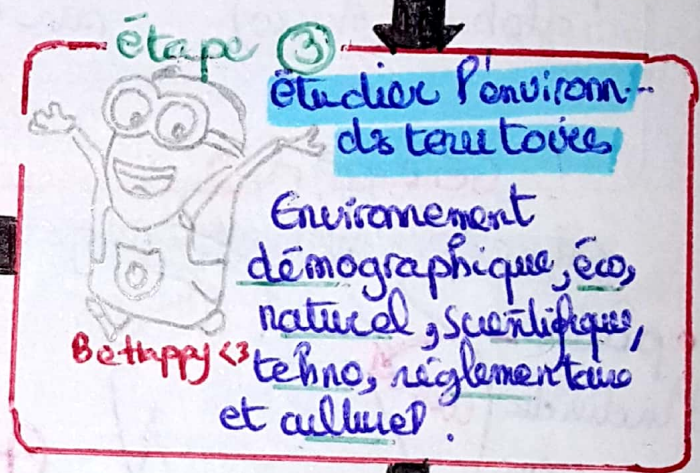 étape ③
étudier l'environn...
ds territoires
Environnement
démographique, éco,
naturel, scientifique,
tehno, réglementaire
et culturel.
Be Happy <3